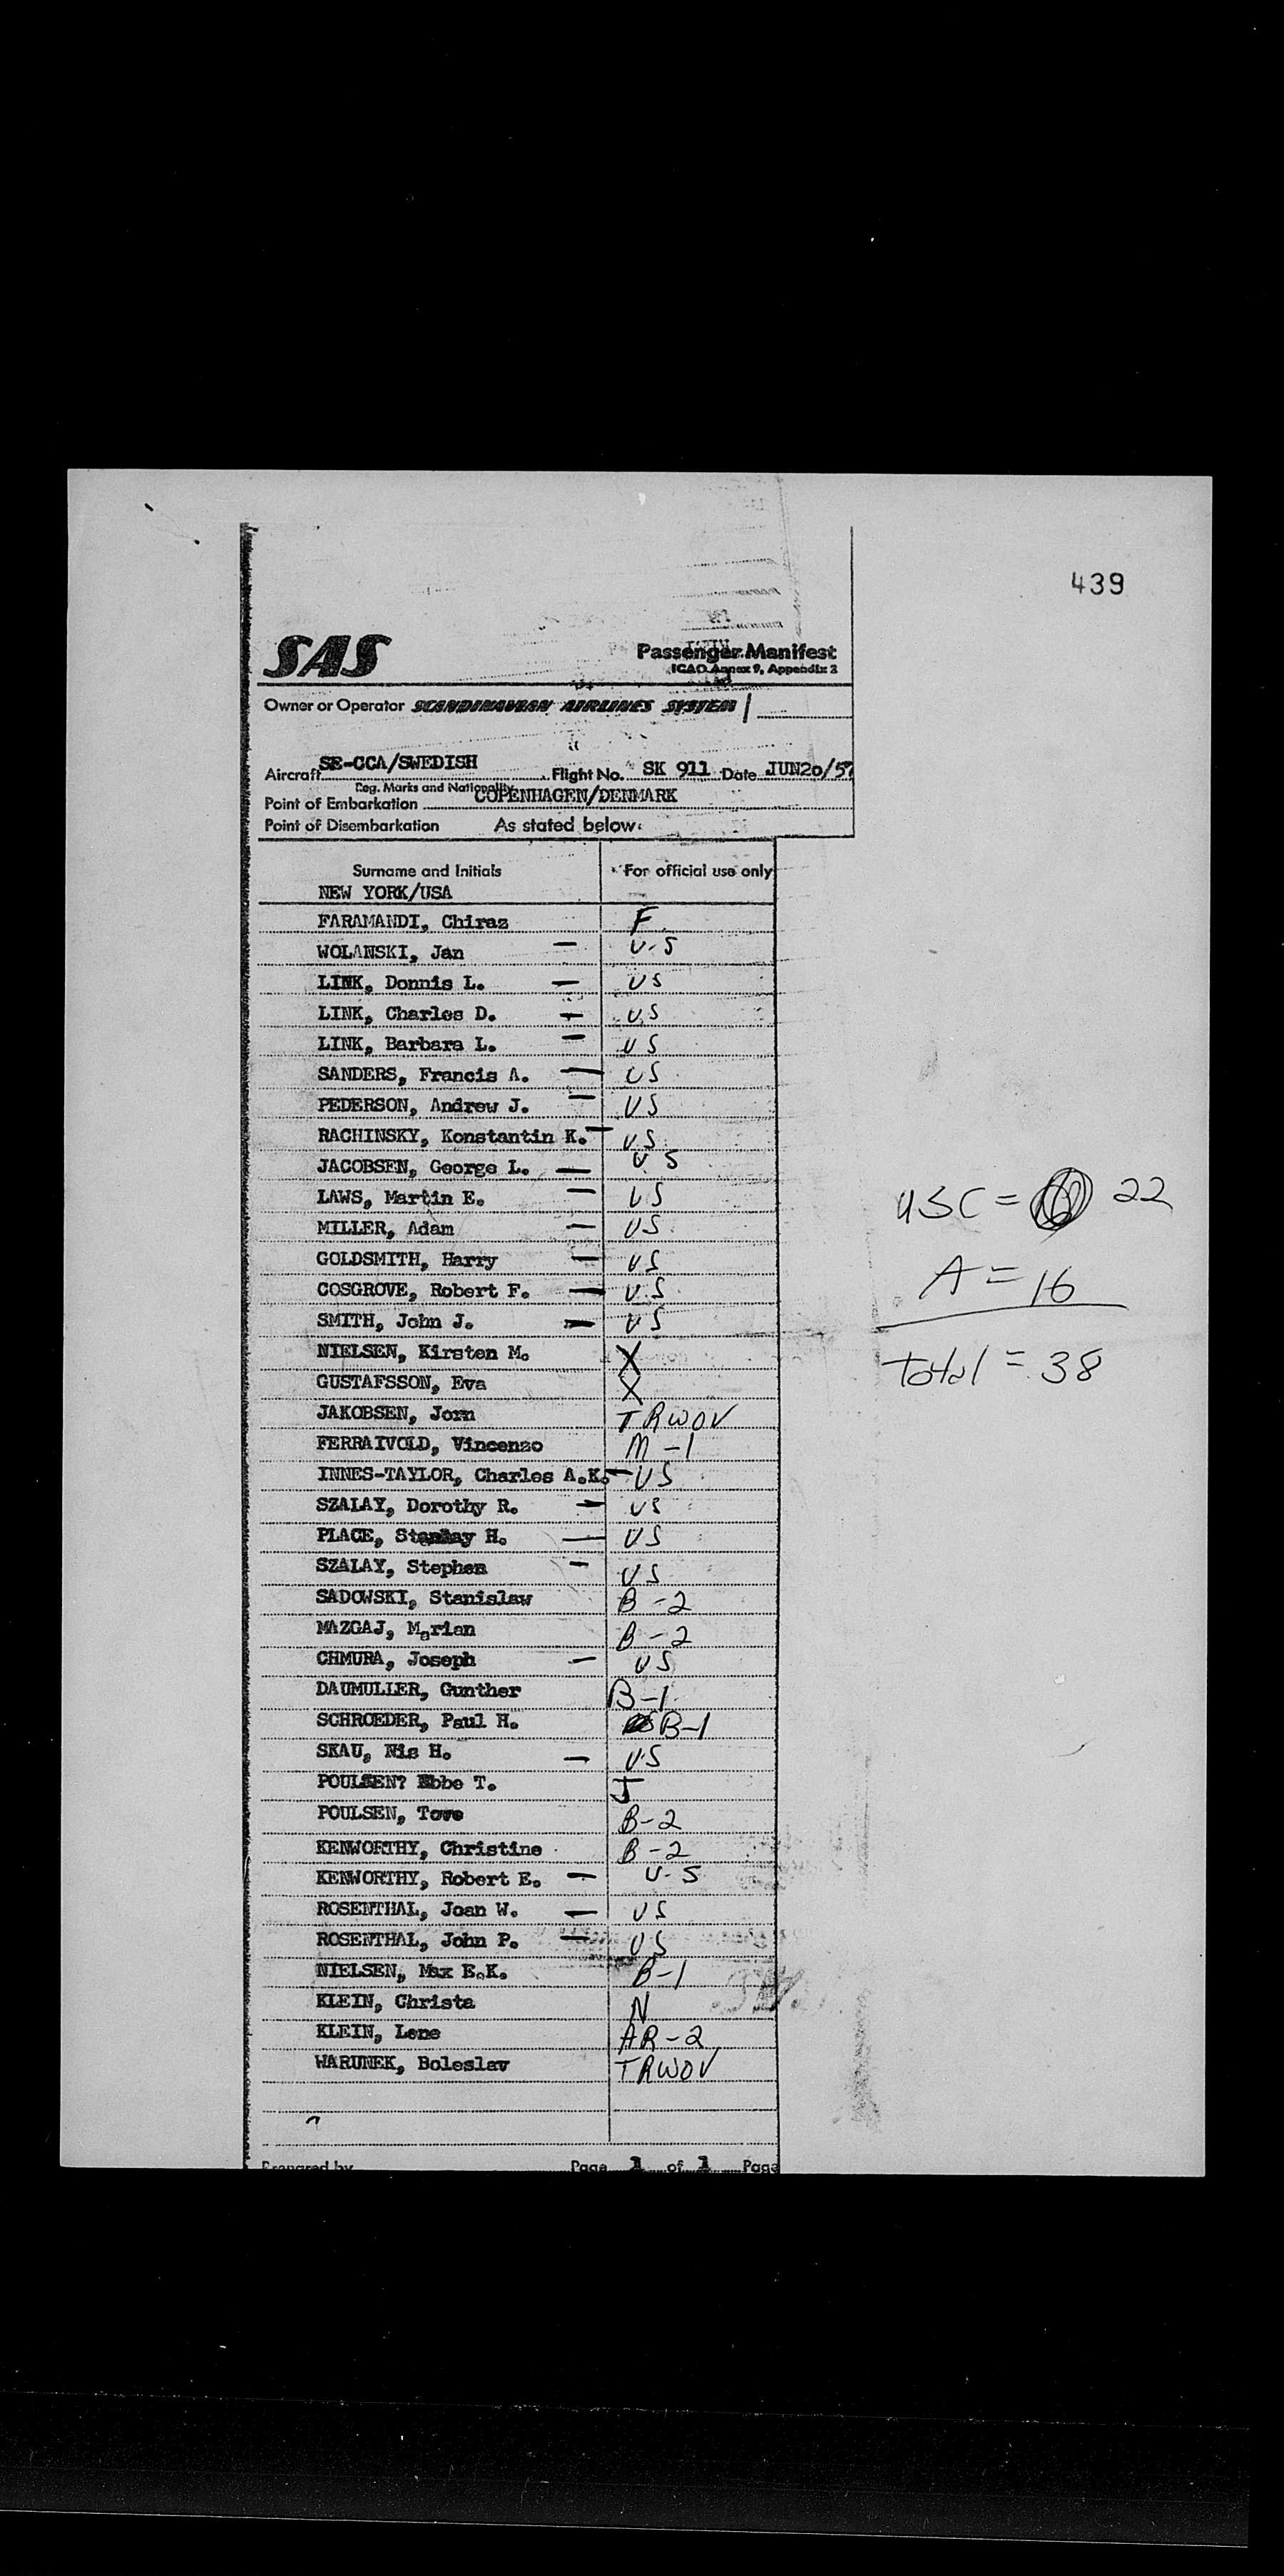 439
SAS
Passenger Manifest
ICAO Annex 9, Appendix 2
Owner or Operator SCANDINAVIAN AIRLINES SYSTEM
Aircraft SE-CCA/SWEDISH Flight No. SK 911 Date JUN20/57
Reg. Marks and Nationality
Point of Embarkation COPENHAGEN/DENMARK
Point of Disembarkation As stated below:
Surname and Initials For official use only
NEW YORK/USA
FARAMANDI, Chiraz F
WOLANSKI, Jan — U.S
LINK, Donnis L. — US
LINK, Charles D. — U.S
LINK, Barbara L. — US
SANDERS, Francis A. — US
PEDERSON, Andrew J. — US
RACHINSKY, Konstantin K. — US
JACOBSEN, George L. — U.S
LAWS, Martin E. — US
MILLER, Adam — US
GOLDSMITH, Harry — US
COSGROVE, Robert F. — U.S
SMITH, John J. — US
NIELSEN, Kirsten M. X
GUSTAFSSON, Eva X
JAKOBSEN, Jorn TRWOV
FERRAIVOLD, Vincenzo M-1
INNES-TAYLOR, Charles A.K. — US
SZALAY, Dorothy R. — US
PLACE, H. — US
SZALAY, Stephen — US
SADOWSKI, Stanislaw B-2
MAZGAJ, Marian B-2
CHMURA, Joseph — US
DAUMULLER, Gunther B-1
SCHROEDER, Paul H. B-1
SKAU, Nis H. — U.S
POULSEN? Ebbe T. J
POULSEN, Tove B-2
KENWORTHY, Christine B-2
KENWORTHY, Robert E. — U.S
ROSENTHAL, Joan W. — US
ROSENTHAL, John P. — US
NIELSEN, Max E.K. B-1
KLEIN, Christa N
KLEIN, Lene AR-2
WARUNEK, Boleslav TRWOV
Prepared by Page 1 of 1 Page
USC = 22
A = 16
total = 38